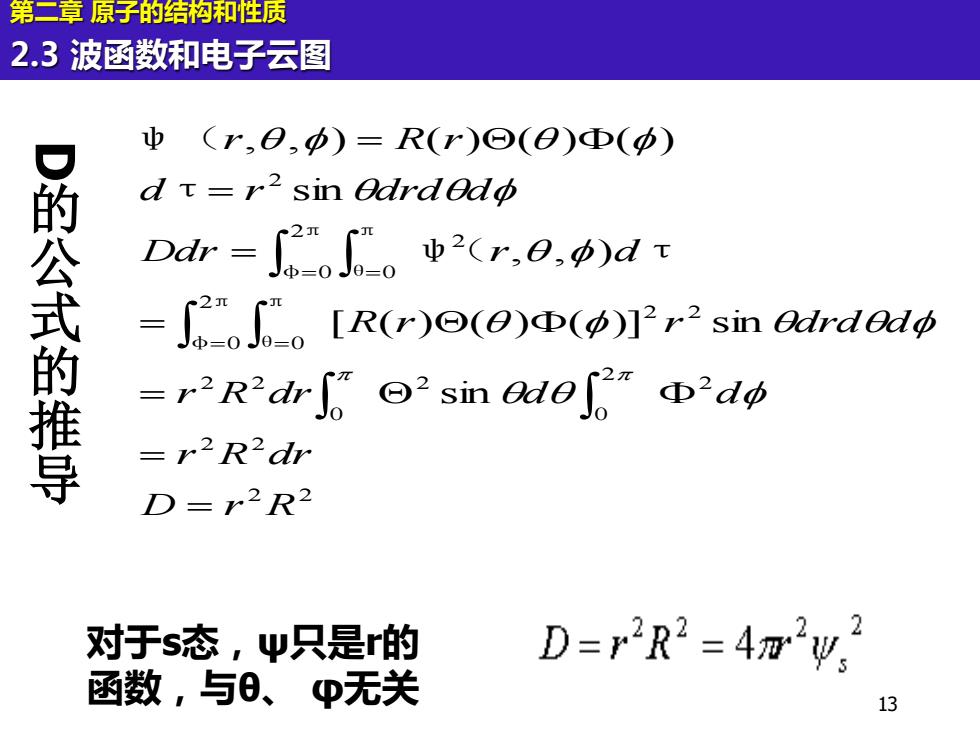 第二章 原子的结构和性质
2.3 波函数和电子云图
D的公式的推导
ψ（r,θ,ϕ) = R(r)Θ(θ)Φ(ϕ)
dτ = r² sin θdrdθdϕ
Ddr = ∫_{φ=0}^{2π} ∫_{θ=0}^{π} ψ²（r,θ,ϕ)dτ
= ∫_{φ=0}^{2π} ∫_{θ=0}^{π} [R(r)Θ(θ)Φ(ϕ)]² r² sin θdrdθdϕ
= r²R²dr ∫_0^π Θ² sin θdθ ∫_0^{2π} Φ²dϕ
= r²R²dr
D = r²R²
对于s态，ψ只是r的
函数，与θ、 φ无关
D = r²R² = 4πr²ψ_s²
13